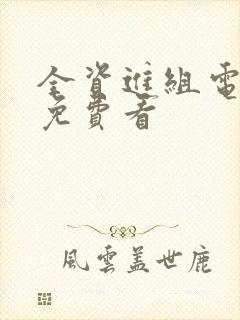 全资進組電
免費看
風雲蓋世鹿